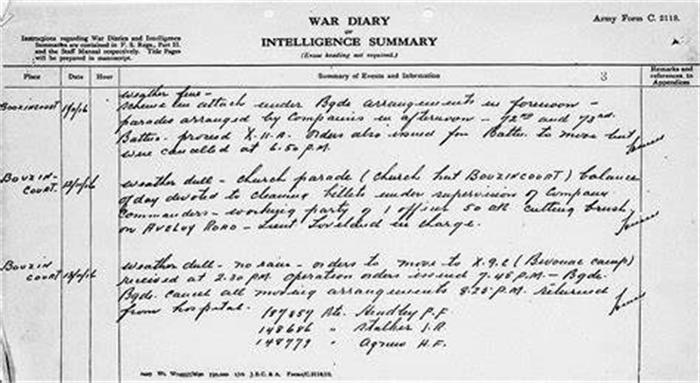 WAR DIARY
OR
INTELLIGENCE SUMMARY
(Erase heading not required.)
Army Form C. 2118.
Instructions regarding War Diaries and Intelligence
Summaries are contained in F. S. Regs., Part II.
and the Staff Manual respectively. Title Pages
will be prepared in manuscript.
Place Date Hour Summary of Events and Information 3 Remarks and
references to
Appendices
weather fine -
BOUZINCOURT scheme in attack under Bgde arrangements in forenoon -
parades arranged by Companies in afternoon - 72nd and 73rd
Battns. proceed X.11.A. Orders also issued for Battn. to move but
were cancelled at 6.50 P.M.
BOUZIN-
COURT weather dull - church parade (church hut BOUZINCOURT) balance
of day devoted to cleaning billets under supervision of Company
Commanders - working party of 1 officer 50 oth cutting brush
on AVELUY ROAD - Lieut Loveland in charge.
BOUZIN
COURT weather dull - no rain - orders to move to X.9.C (Bivouac camp)
received at 2.30 P.M. operation orders issued 7.45 P.M. - Bgde.
Bgde. cancel all moving arrangements 8.25 P.M. returned
from hospital. 187257 Pte. Hendley P.F
148686 " Stalker J.R.
148779 " Agnew H.F.